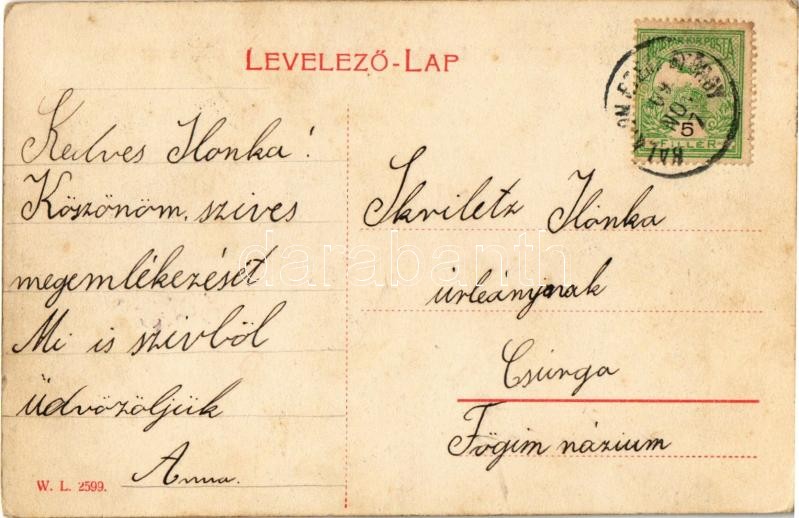 LEVELEZŐ-LAP
MAGYAR KIR. POSTA
5
FILLÉR
Kedves Ilonka!
Köszönöm szives
megemlékezését
Mi is szivből
üdvözöljük
Anna.
Skviletz Ilonka
úrleánynak
Csurgó
Főgimnázium
W. L. 2599.
darabanth